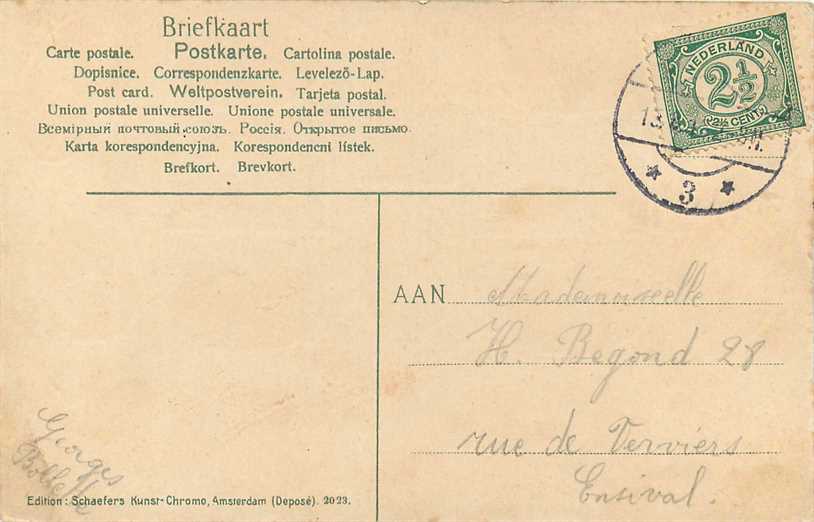 Briefkaart
Carte postale. Postkarte. Cartolina postale.
Dopisnice. Correspondenzkarte. Levelező-Lap.
Post card. Weltpostverein. Tarjeta postal.
Union postale universelle. Unione postale universale.
Всемірный почтовый союзъ. Россія. Открытое письмо.
Karta korespondencyjna. Korespondencni lístek.
Brefkort. Brevkort.
NEDERLAND
2½
2½ CENT
13
3
AAN Mademoiselle
H. Begond 28
rue de Verviers
Ensival.
Georges
Edition: Schaefers Kunst-Chromo, Amsterdam (Deposé). 2023.